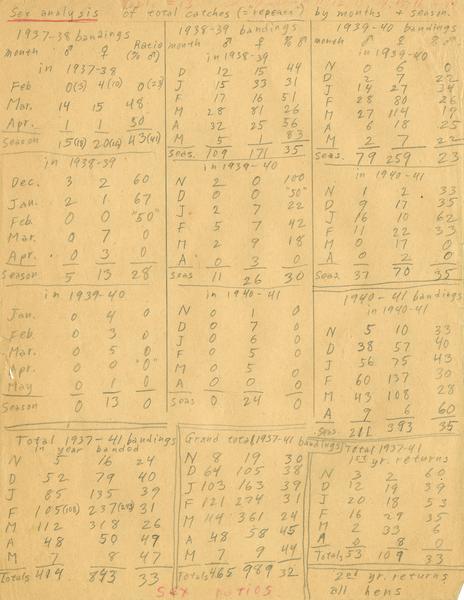 Sex analysis of total catches (="repeats") by months + season.
1937-38 bandings
month ♂ ♀ Ratio (% ♂)
in 1937-38
Feb 0(5) 4(10) 0(23)
Mar. 14 15 48
Apr. 1 1 50
Season 15(18) 20(26) 43(41)
in 1938-39
Dec. 3 2 60
Jan. 2 1 67
Feb. 0 0 "50"
Mar. 0 7 0
Apr. 0 3 0
Season 5 13 28
in 1939-40
Jan. 0 4 0
Feb. 0 3 0
Mar. 0 5 0
Apr. 0 0 "0"
May 0 1 0
Season 0 13 0
1938-39 bandings
month ♂ ♀ % ♂
in 1938-39
D 12 15 44
J 15 33 31
F 17 16 51
M 28 81 26
A 32 25 56
M 5 1 83
Seas. 109 171 35
in 1939-40
N 2 0 100
D 0 0 "50"
J 2 7 22
F 5 7 42
M 2 9 18
A 0 3 0
Seas 11 26 30
in 1940-41
N 0 1 0
D 0 7 0
J 0 6 0
F 0 5 0
M 0 5 0
A 0 0 0
Seas 0 24 0
1939-40 bandings
month ♂ ♀ % ♂
in 1939-40
N 0 6 0
D 2 7 22
J 14 27 34
F 28 80 26
M 27 114 19
A 6 18 25
M 2 7 22
Seas. 79 259 23
in 1940-41
N 1 2 33
D 9 17 35
J 16 10 62
F 11 22 33
M 0 17 0
A 0 2 0
Seas. 37 70 35
1940-41 bandings
in 1940-41
N 5 10 33
D 38 57 40
J 56 75 43
F 60 137 30
M 43 108 28
A 9 6 60
Seas. 211 393 35
Total 1937-41 bandings
in year banded
N 5 16 24
D 52 79 40
J 85 135 39
F 105(108) 237 31
M 112 318 26
A 48 50 49
M 7 8 47
Totals 414 843 33
Grand total 1937-41 bandings
N 8 19 30
D 64 105 38
J 103 163 39
F 121 274 31
M 114 361 24
A 48 58 45
M 7 9 44
Totals 465 989 32
Total 1937-41
1st yr. returns
N 3 2 60
D 12 19 39
J 20 18 53
F 16 29 35
M 2 33 6
A 0 8 0
Totals 53 109 33
2nd yr. returns
all hens
Sex ratios